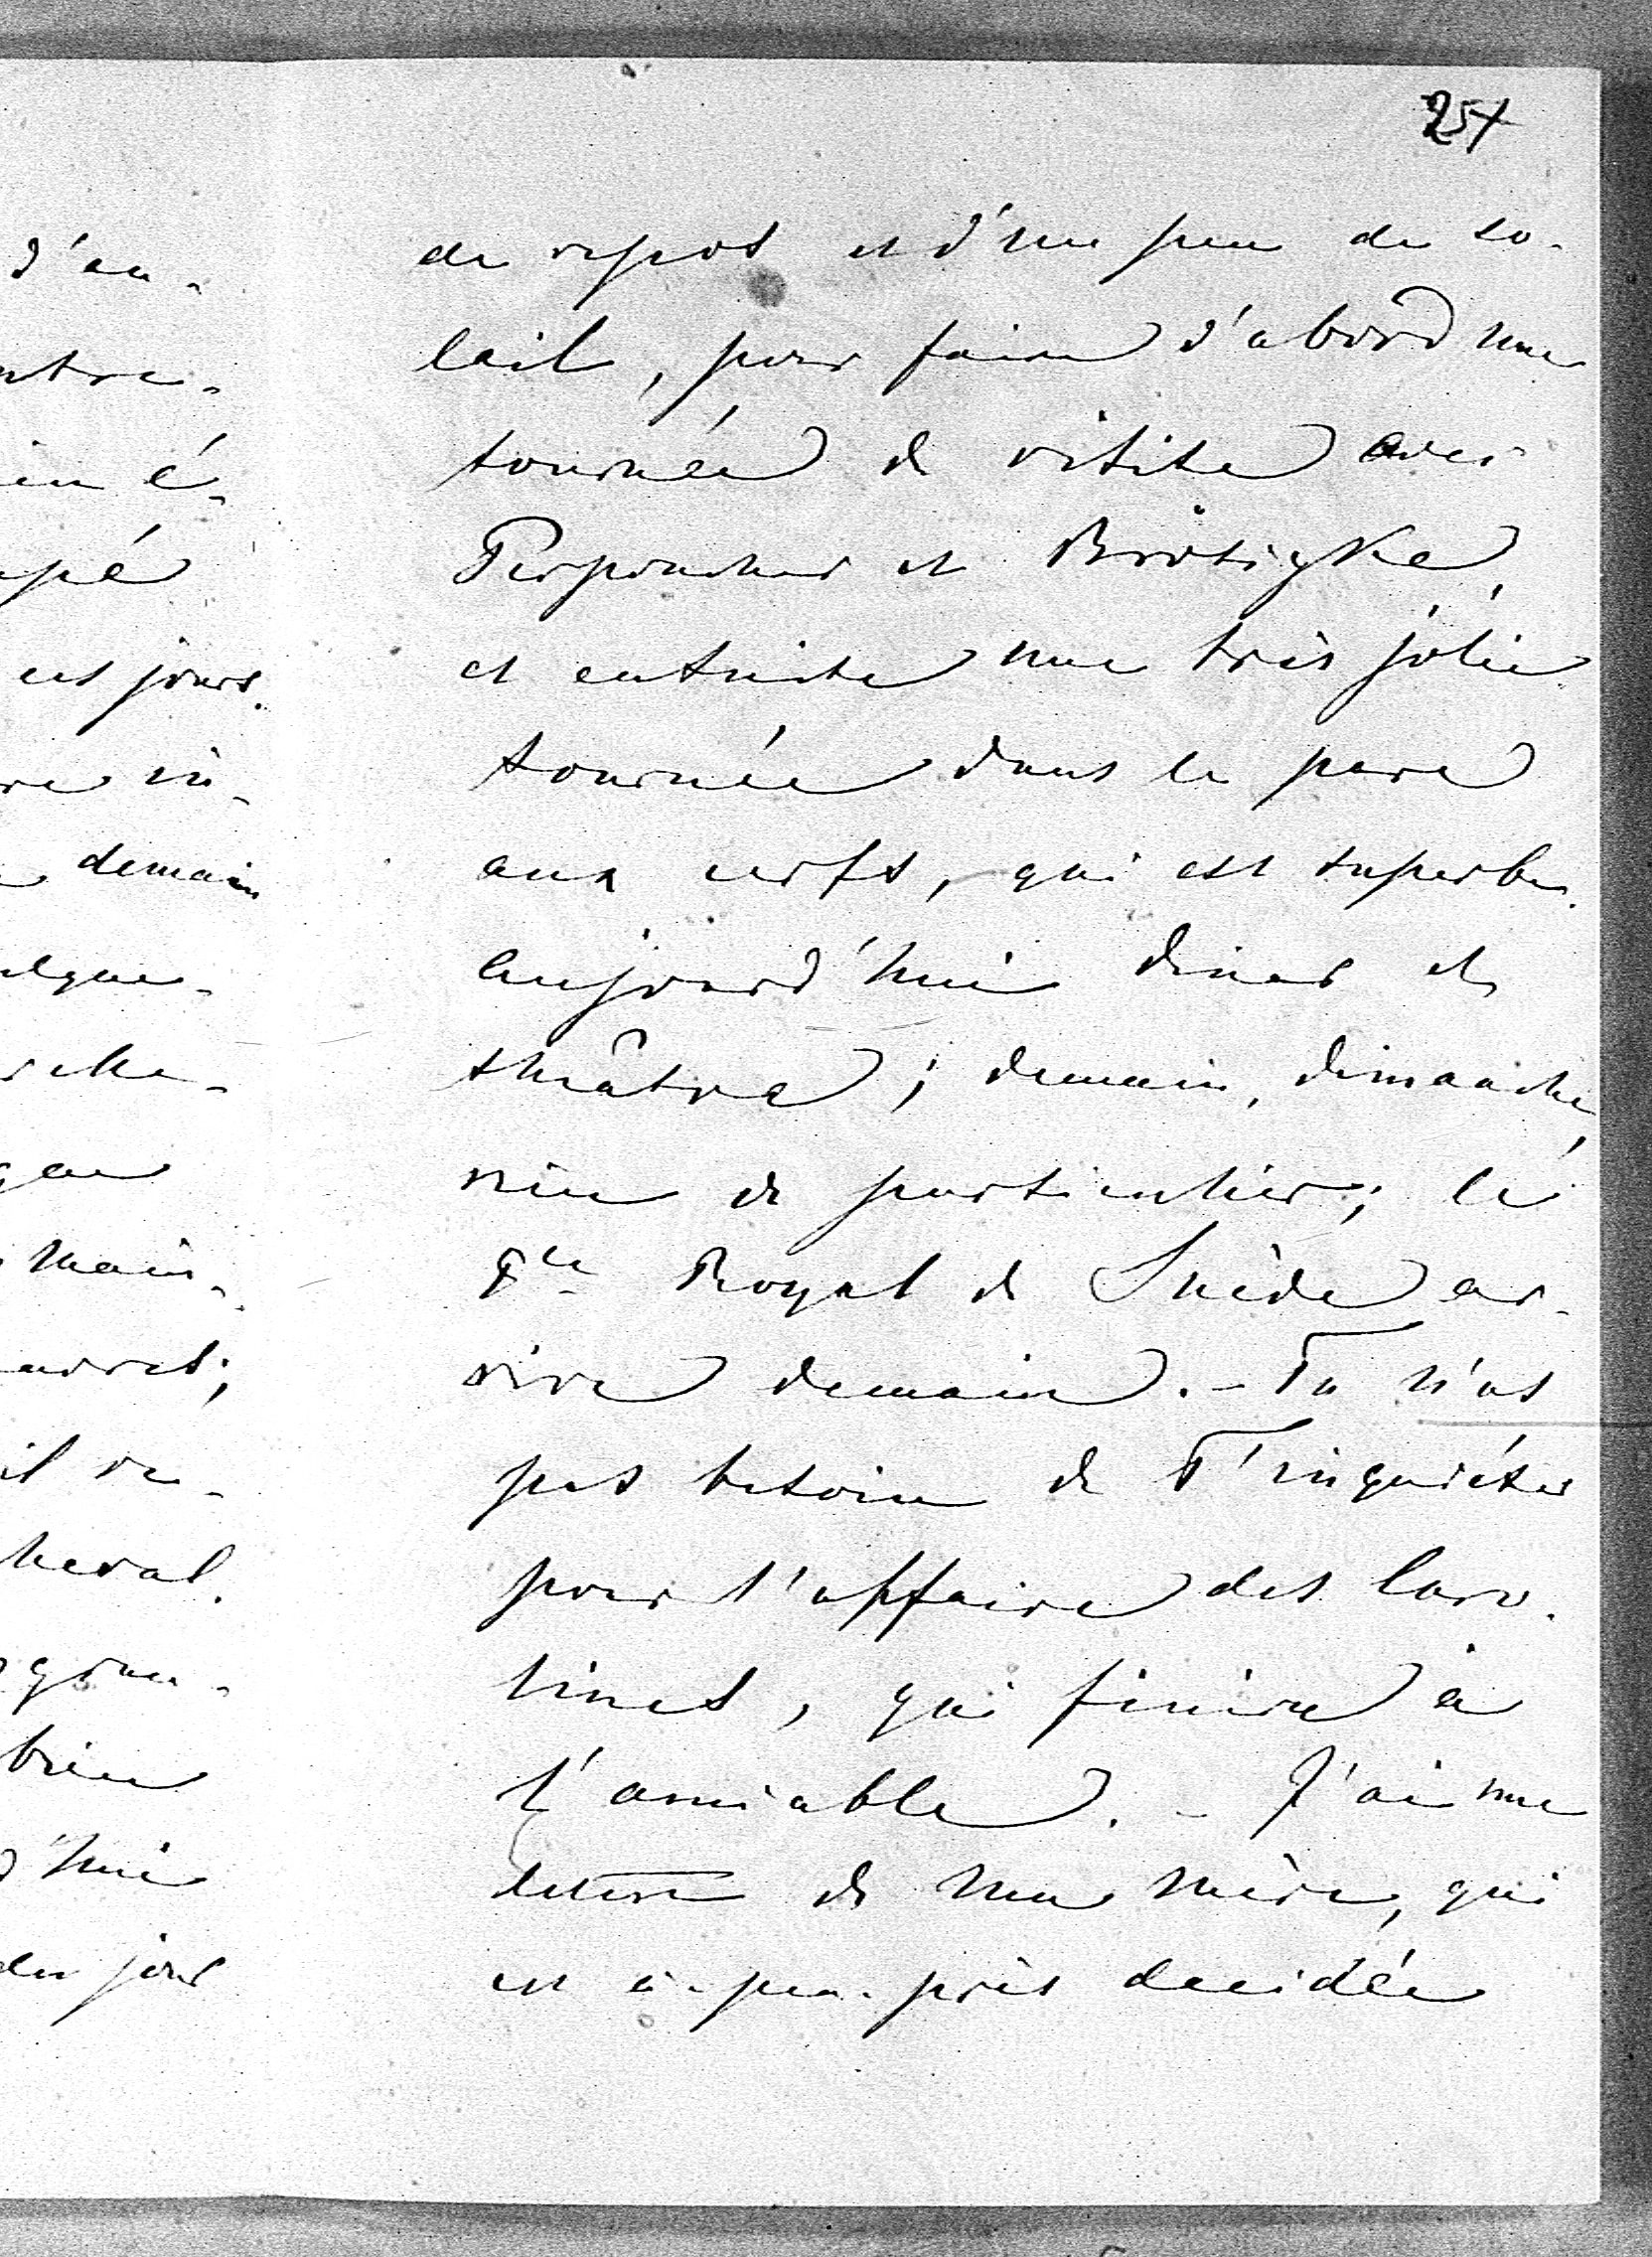 257
d'en-
ntre-
in é-
upé
ces jours.
re in-
demain
elque-
rche-
que
main-
arret;
il re-
heval.
bien
d'hui
du jour
de repos et d'un peu de so-
leil, pour faire d'abord une
tournée de visite avec
Perponcher et Brösigke,
et ensuite une très jolie
tournée dans le parc
aux cerfs, qui est superbe.
Aujourd'hui diner et
théâtre; demain, dimanche,
rien de particulier; le
Pce Royal de Suède ar-
rive demain. - Tu n'as
pas besoin de T'inquiéter
pour l'affaire des Caro-
lines, qui finira à
l'amiable. - J'ai une
lettre de ma mère, qui
est à-peu-près decidée